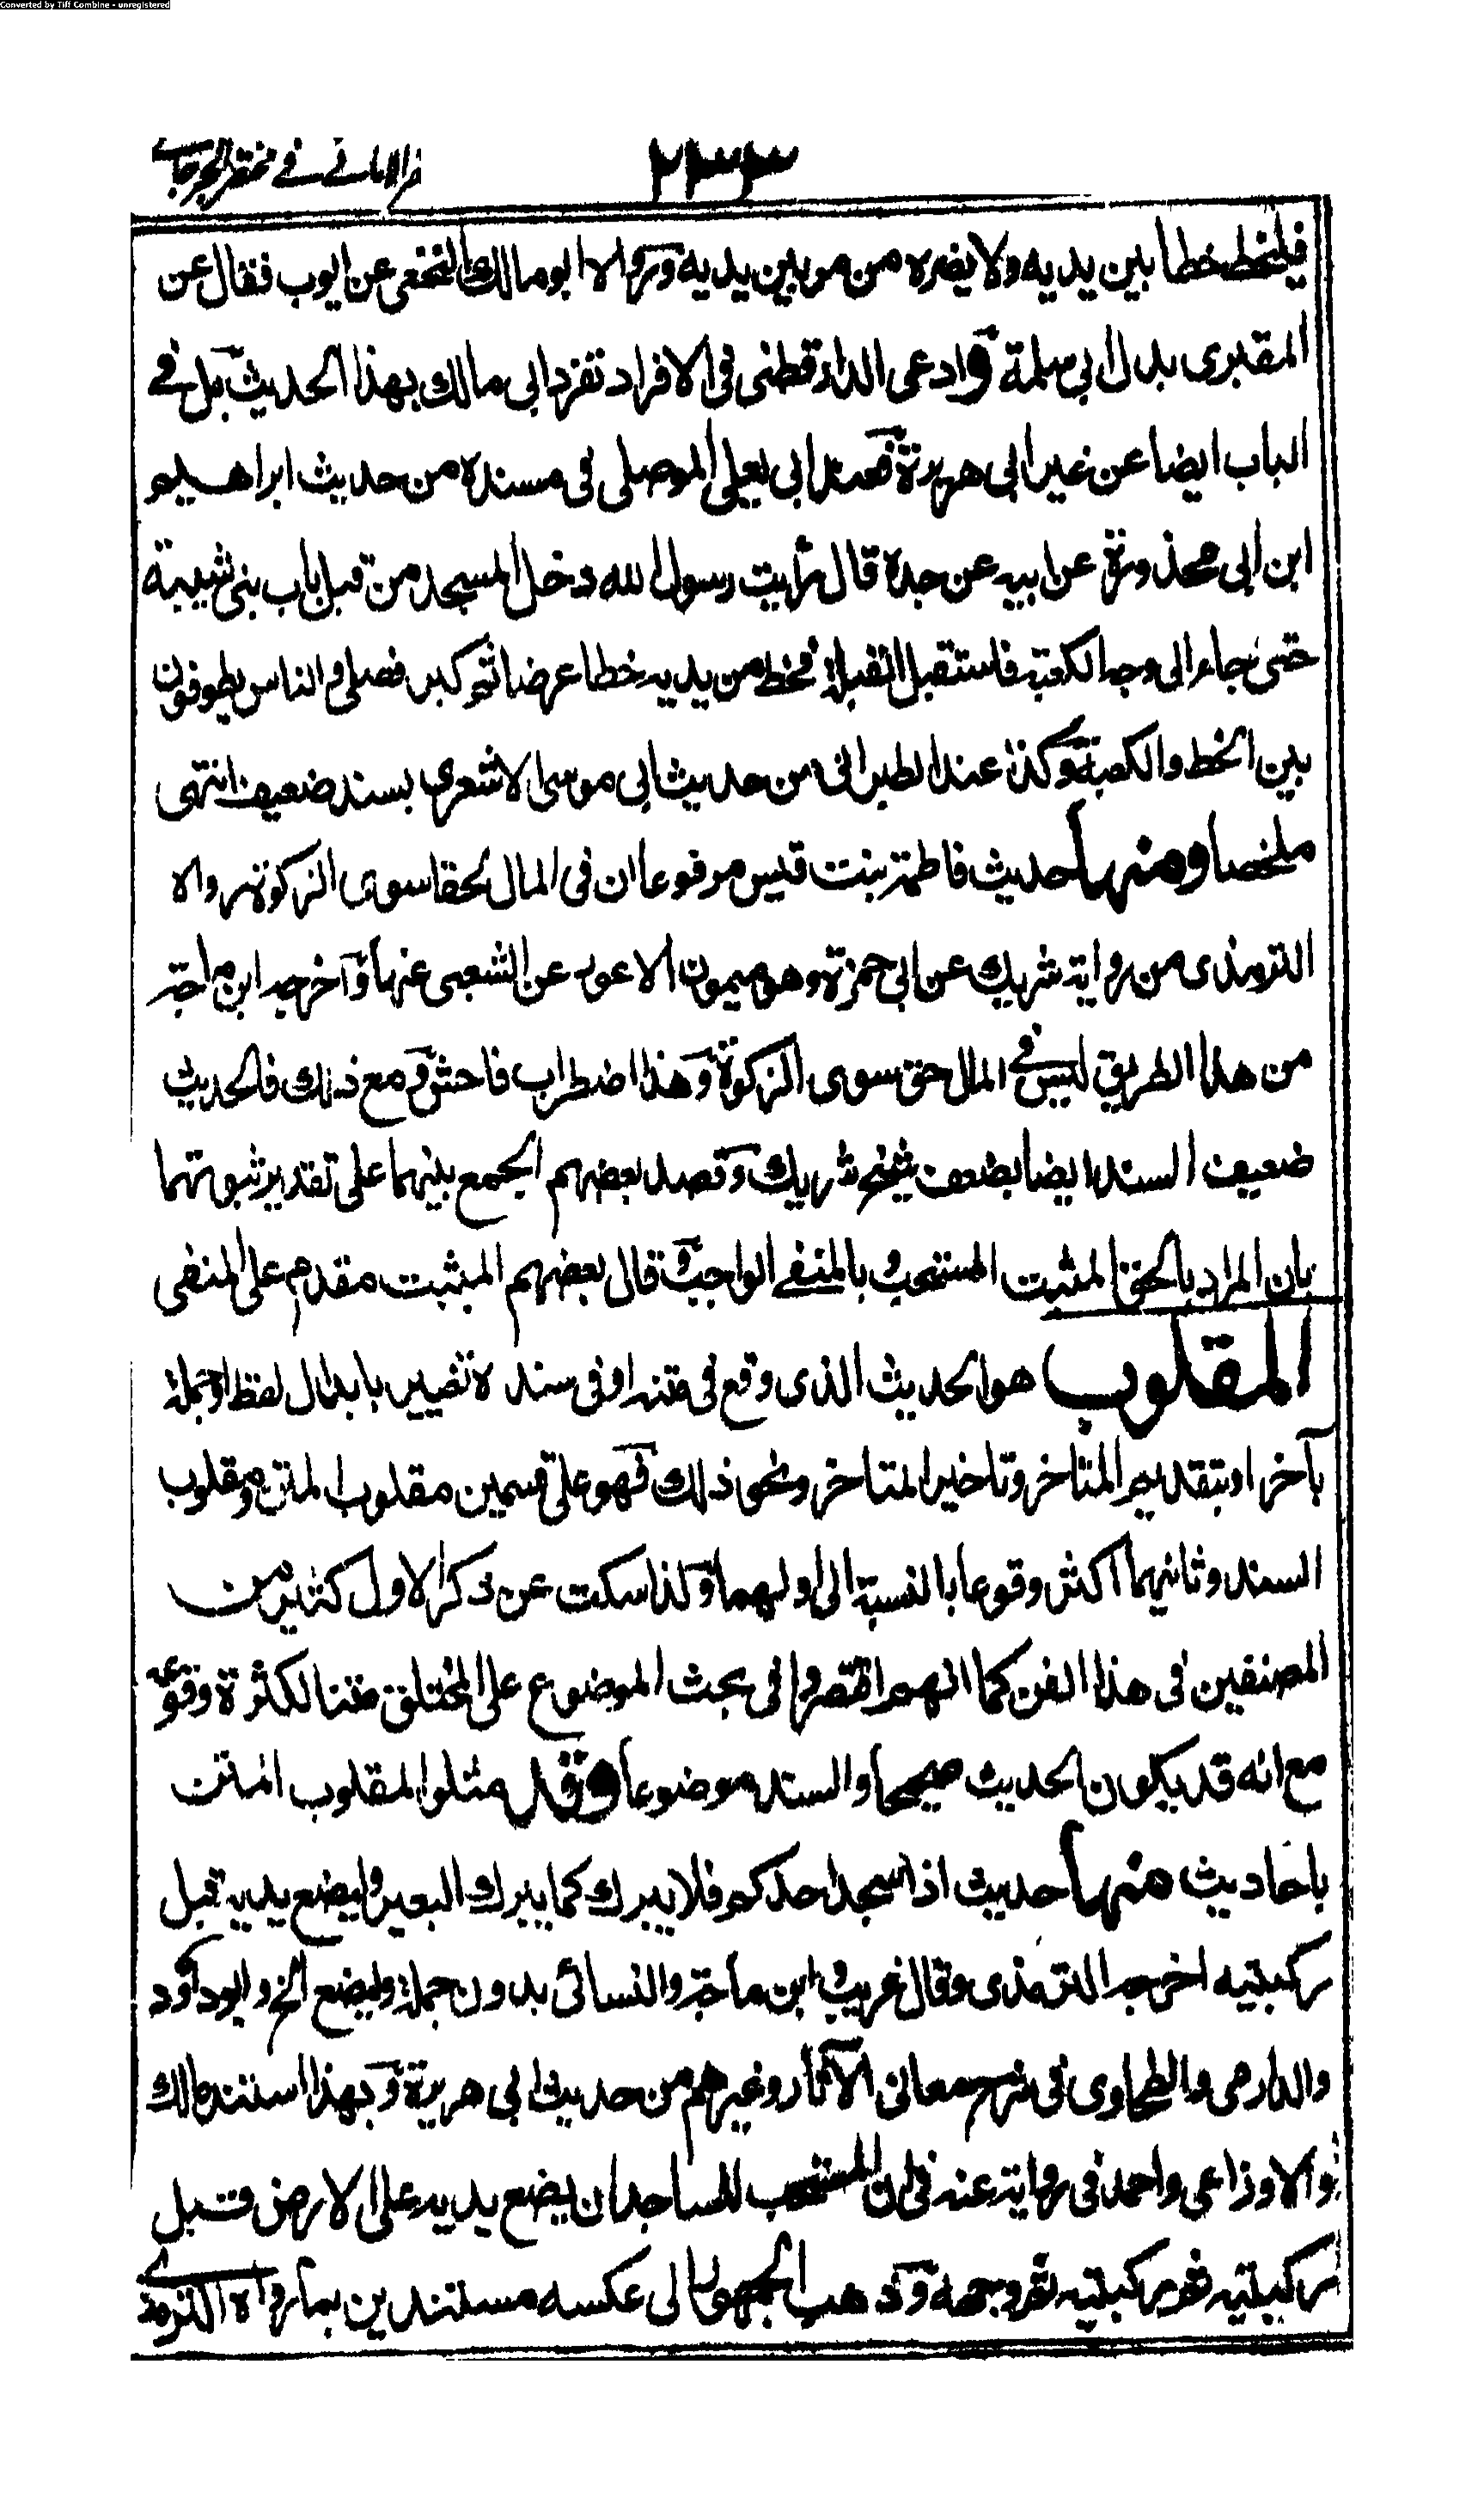 Converted by Tiff Combine - unregistered
٢٣٣
الامانے فے مختصر الجرجانے
فليخط خطا بين يديه ولا يضره من مر بين يديه ورواه ابو مالك النخعى عن ايوب فقال عن
المقبرى بدل ابى سلمة وادعى الدارقطنى فى الافراد تفرد ابى مالك بهذا الحديث بل فے
الباب ايضا عن غير ابى هريرة فعند ابى يعلى الموصلى فى مسنده من حديث ابراهيم
ابن ابى محذورة عن ابيه عن جده قال رأيت رسول الله دخل المسجد من قبل باب بنى شيبة
حتى جاء الى وجه الكعبة فاستقبل القبلة فخط من يديه خطا عرضا ثم كبر فصلى والناس يطوفون
بين الخط والكعبة وكذا عند الطبرانى من حديث ابى موسى الاشعرى بسند ضعيف انتهى
ملخصا ومنها حديث فاطمة بنت قيس مرفوعا ان فى المال لحقا سوى الزكوة رواه
الترمذى من رواية شريك عن ابى حمزة وهو ميمون الاعور عن الشعبى عنها وآخرجه ابن ماجة
من هذا الطريق ليس فے المال حق سوى الزكوة وهذا اضطراب فاحش ومع ذلك فالحديث
ضعيف السند ايضا بضعف شيخ شريك وقصد بعضهم الجمع بينهما على تقدير ثبوتهما
بان المراد بالحق المثبت المستحب وبالمنفے الواجب وقال بعضهم المثبت مقدم على المنفى
المقلوب هو الحديث الذى وقع فى متنه او فى سنده تغيير بابدال لفظ او جملة
بآخر او بتقديم المتاخر وتاخير المتاخر ونحو ذلك فهو على قسمين مقلوب المتن ومقلوب
السند وثانيهما اكثر وقوعا بالنسبة الى اولهما ولذا سكت عن ذكر الاول كثير من
المصنفين فى هذا الفن كما انهم اقتصروا فى بحث الموضوع على المختلق متنا لكثرة وقوعه
مع انه قد يكون الحديث صحيحا والسند موضوعا وقد مثلوا المقلوب المتن
باحاديث منها حديث اذا سجد احدكم فلا يبرك كما يبرك البعير وليضع يديه قبل
ركبتيه اخرجه الترمذى وقال غريب وابن ماجة والنسائى بدون جملة وليضع الخ وابو داود
والدارمى والطحاوى فى شرح معانى الآثار وغيرهم من حديث ابى هريرة وبهذا استند مالك
والاوزاعى واحمد فى رواية عنه فى ان المستحب للساجد ان يضع يديه على الارض قبل
ركبتيه ثم ركبتيه ثم وجهه وذهب الجمهور الى عكسه مستندين بما رواه الترمذے